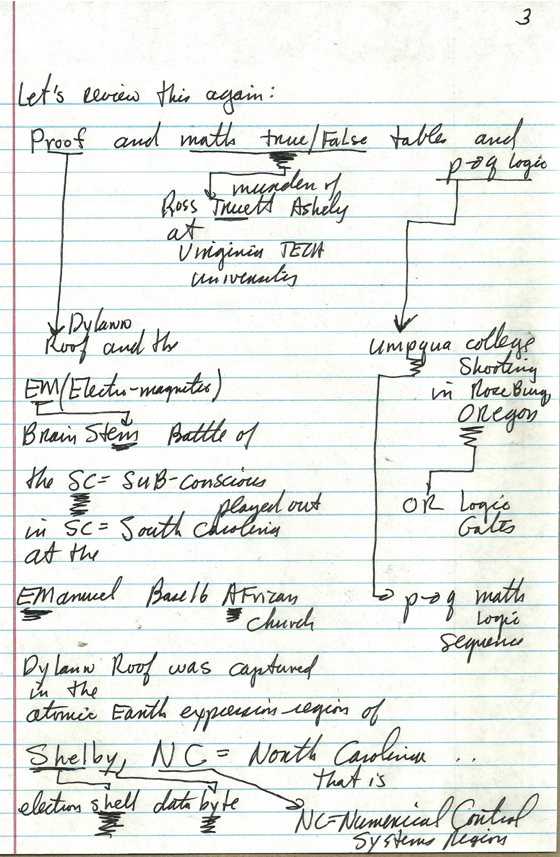 3
Let's review this again:
Proof and math true/False tables and
p→q logic
murder of
Ross Truett Ashely
at
Virginia TECH
University
Dylann
Roof and the
EM (Electro-magnetic)
Brain Stem Battle of
the SC = SUB-conscious
played out
in SC = South Carolina
at the
EManuel Base 16 AFrican
church
Umpqua college
Shooting
in RoseBurg
OREgon
OR Logic
Gates
p→q math
logic
sequence
Dylann Roof was captured
in the
atomic Earth expression region of
Shelby, NC = North Carolina ..
that is
electron shell data byte
NC = Numerical Control
Systems Region